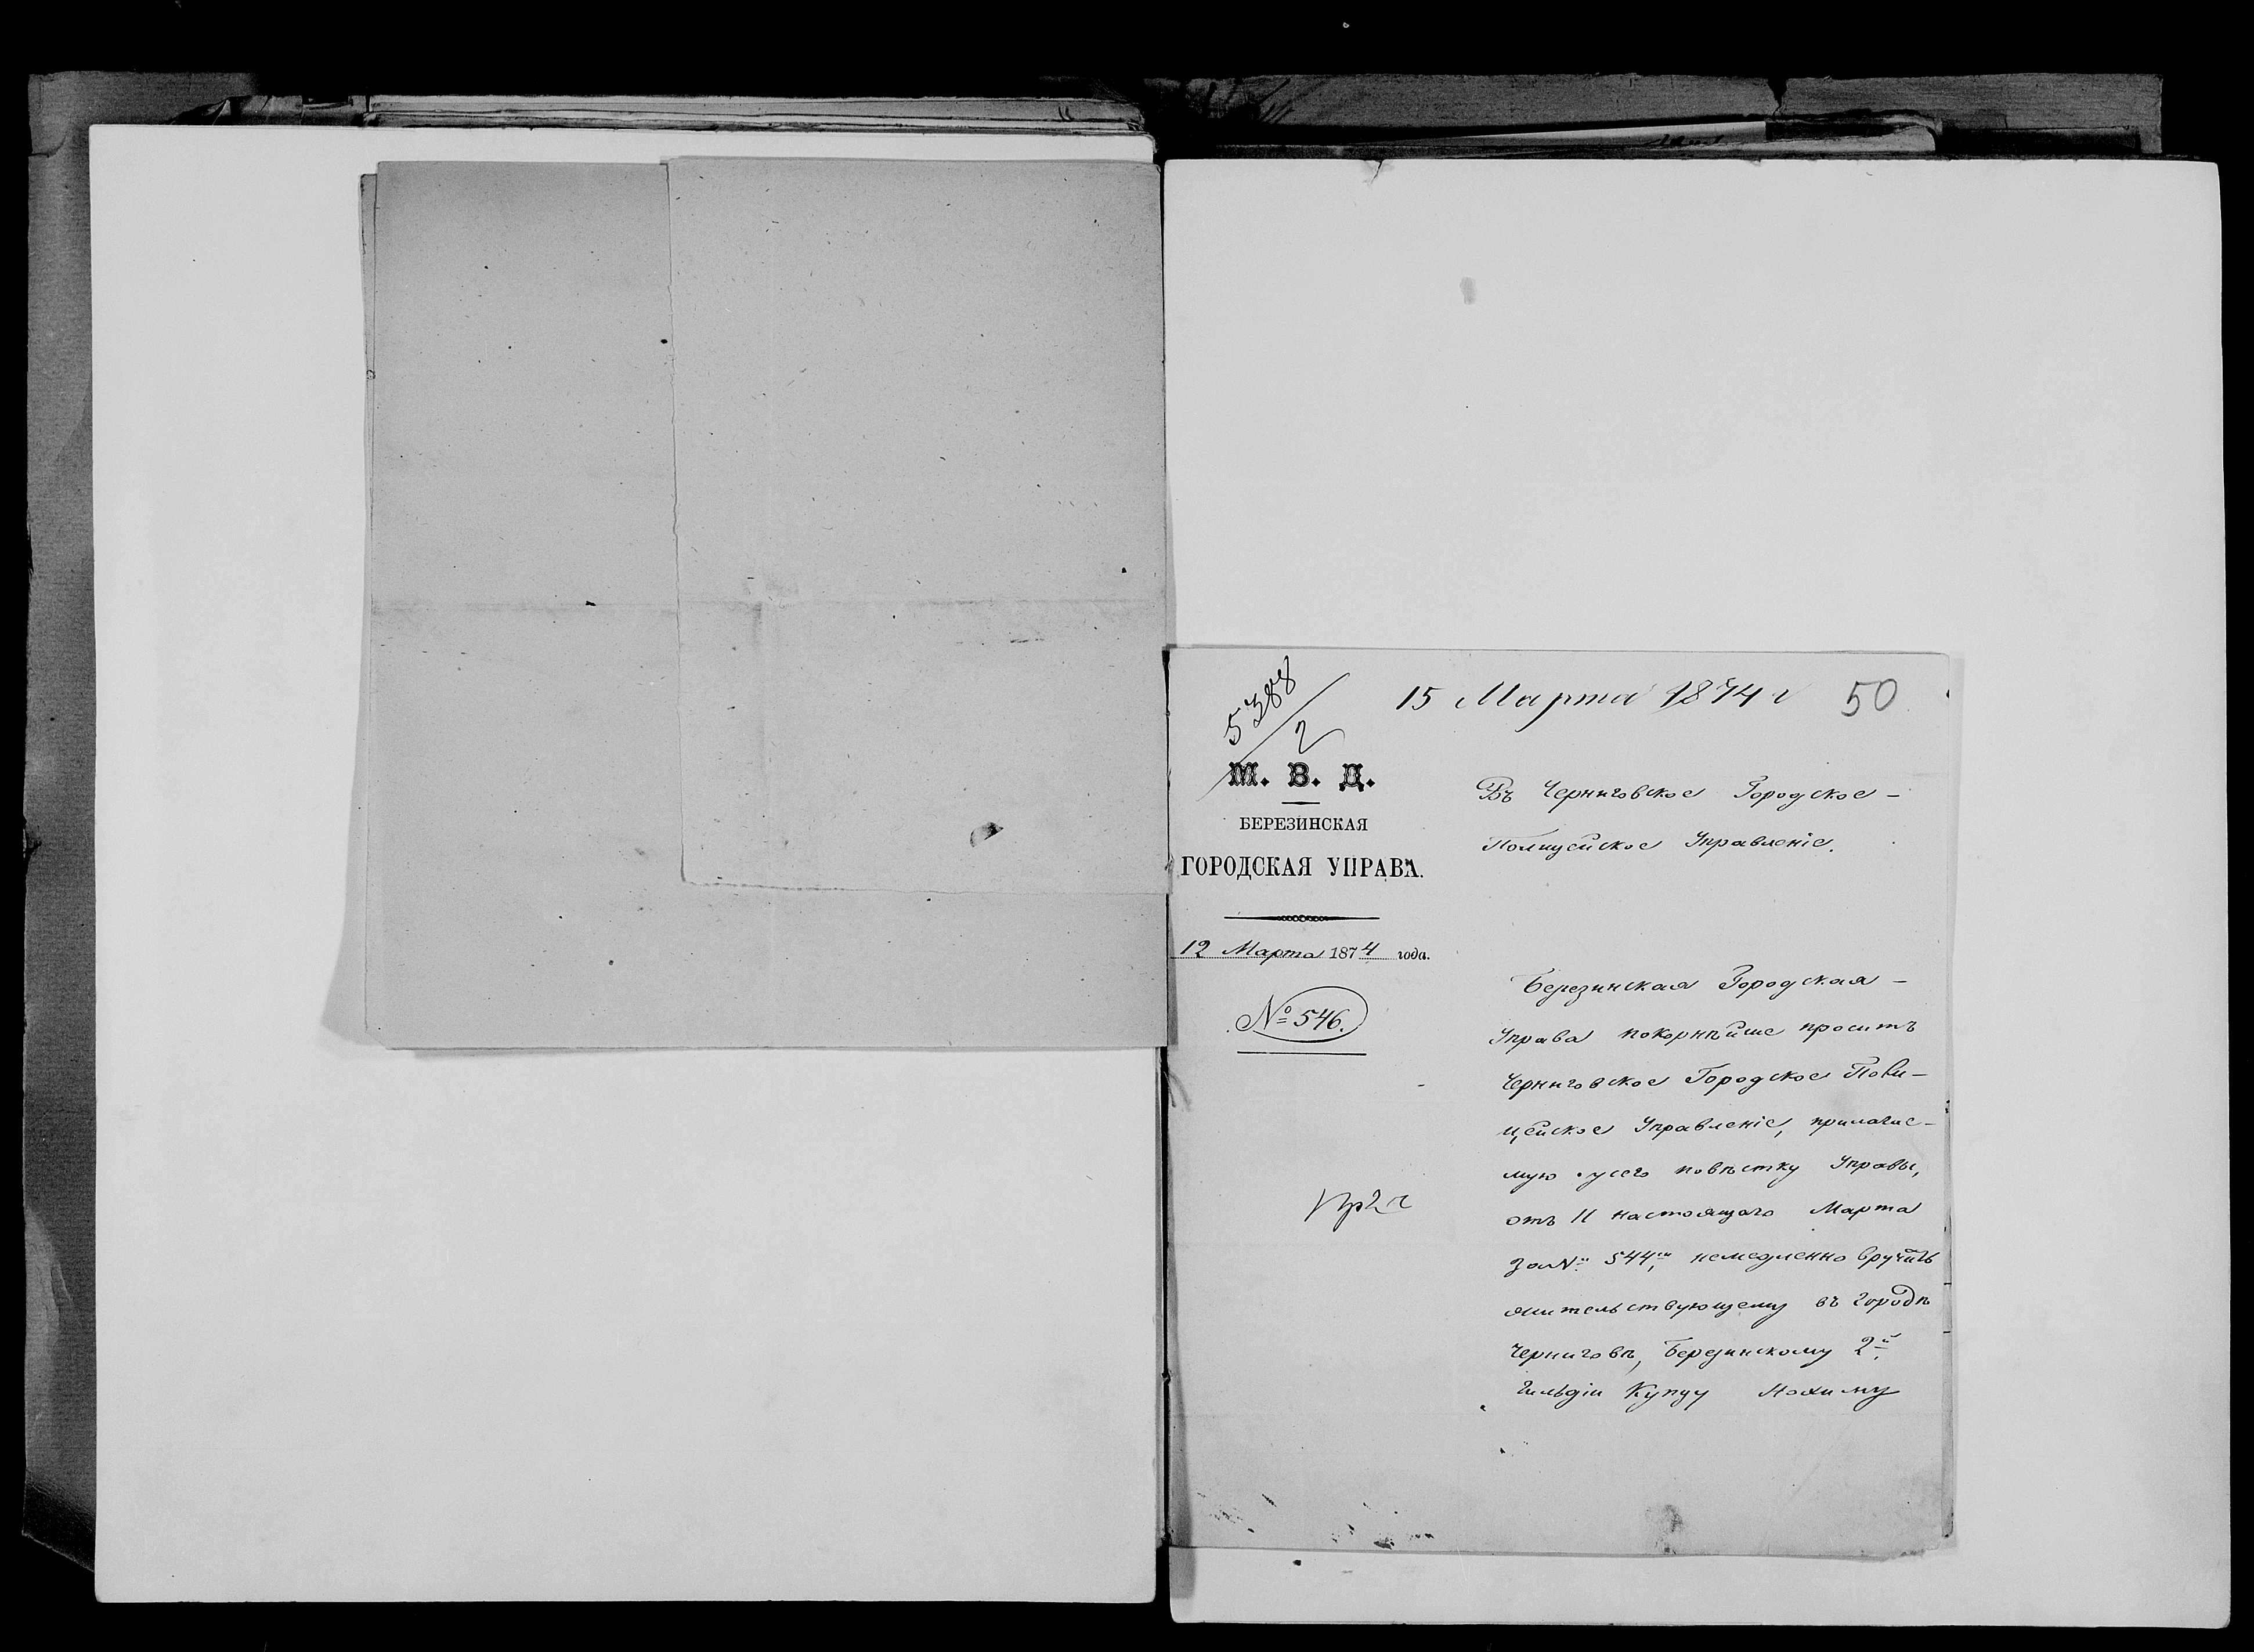 5388/2
15 Марта 1874 г
50
М. В. Д.
БЕРЕЗИНСКАЯ
ГОРОДСКАЯ УПРАВА.
12 Марта 1874 года.
№ 546.
Въ Черниговское Городское –
Полицейское Управленіе.
Березинская Городская –
Управа покорнѣйше проситъ
Черниговское Городское Поли–
цейское Управленіе, прилагае–
мую у сего повѣстку Управы,
отъ 11 настоящаго Марта
за № 544, немедленно вручить
жительствующему въ городѣ
Черниговѣ, Березинскому 2й
Гильдіи Купцу